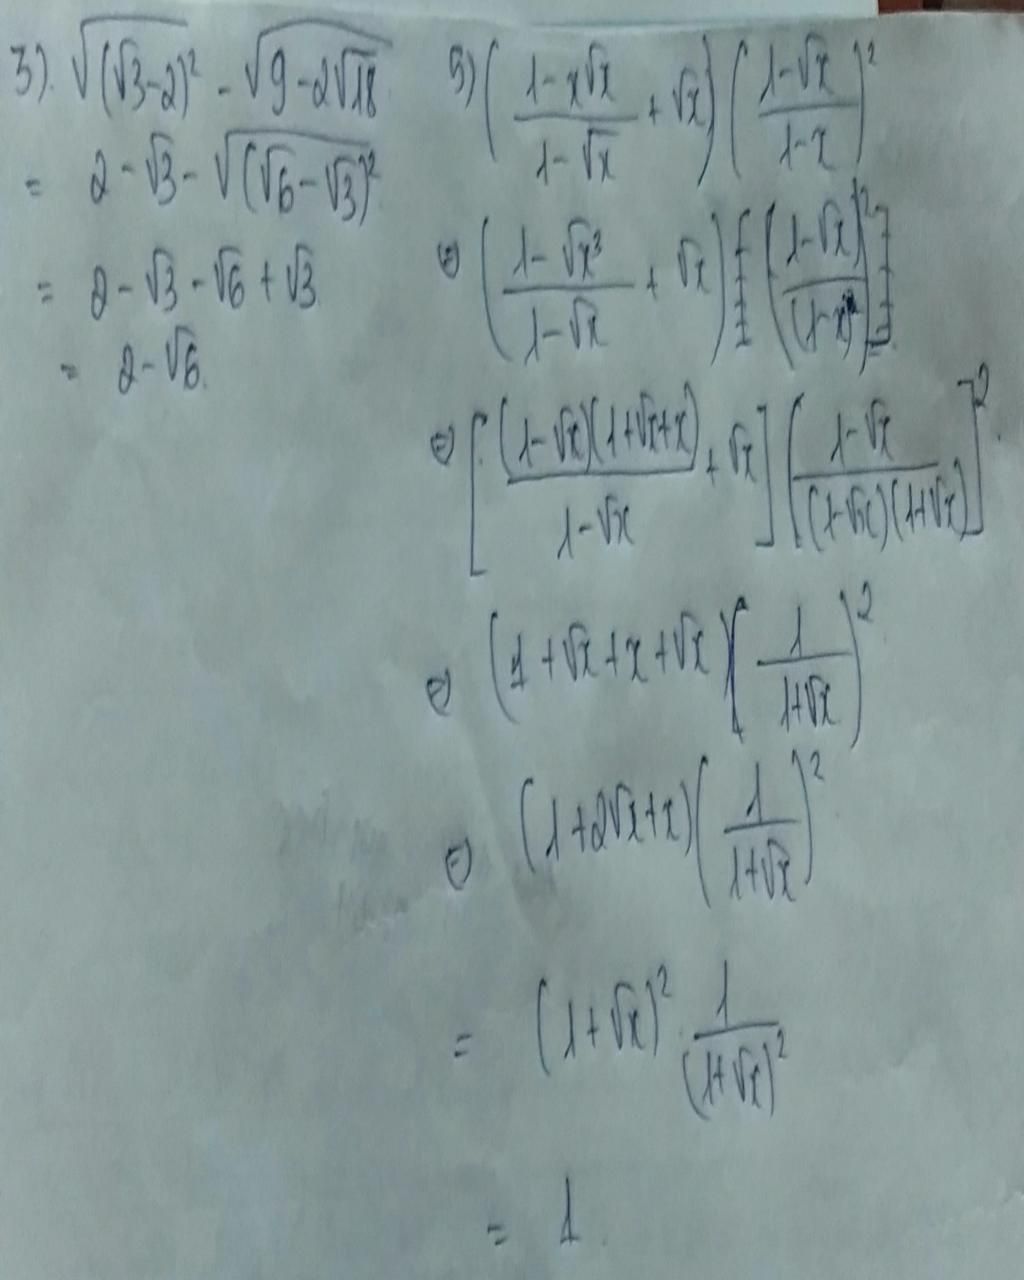 3). √(√3-2)² - √9-2√18
= 2-√3-√(√6-√3)²
= 2-√3-√6+√3
= 2-√6.
5) (1-x√x / 1-√x + √x) (1-√x / 1-x)²
(=) (1-√x³ / 1-√x + √x) [(1-√x)² / (1-x)²]
(=) [(1-√x)(1+√x+x) / 1-√x + √x] [1-√x / (1-√x)(1+√x)]².
(=) (1+√x+x+√x) (1 / 1+√x)²
(=) (1+2√x+x) (1 / 1+√x)²
= (1+√x)² . 1 / (1+√x)²
= 1.